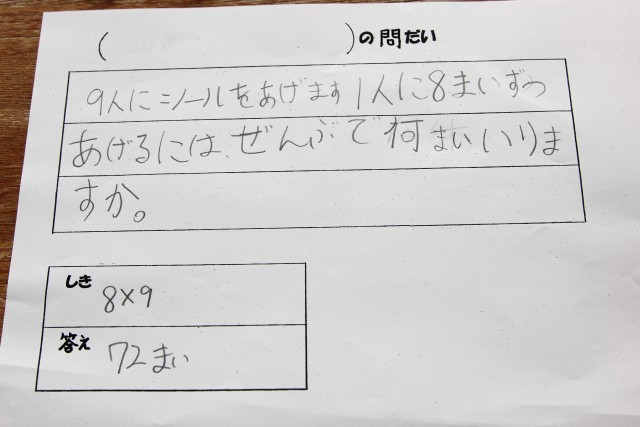 (　　　　　　　　)の問だい
9人にシールをあげます1人に8まいずつ
あげるには、ぜんぶで何まいいりま
すか。
しき 8×9
答え 72まい